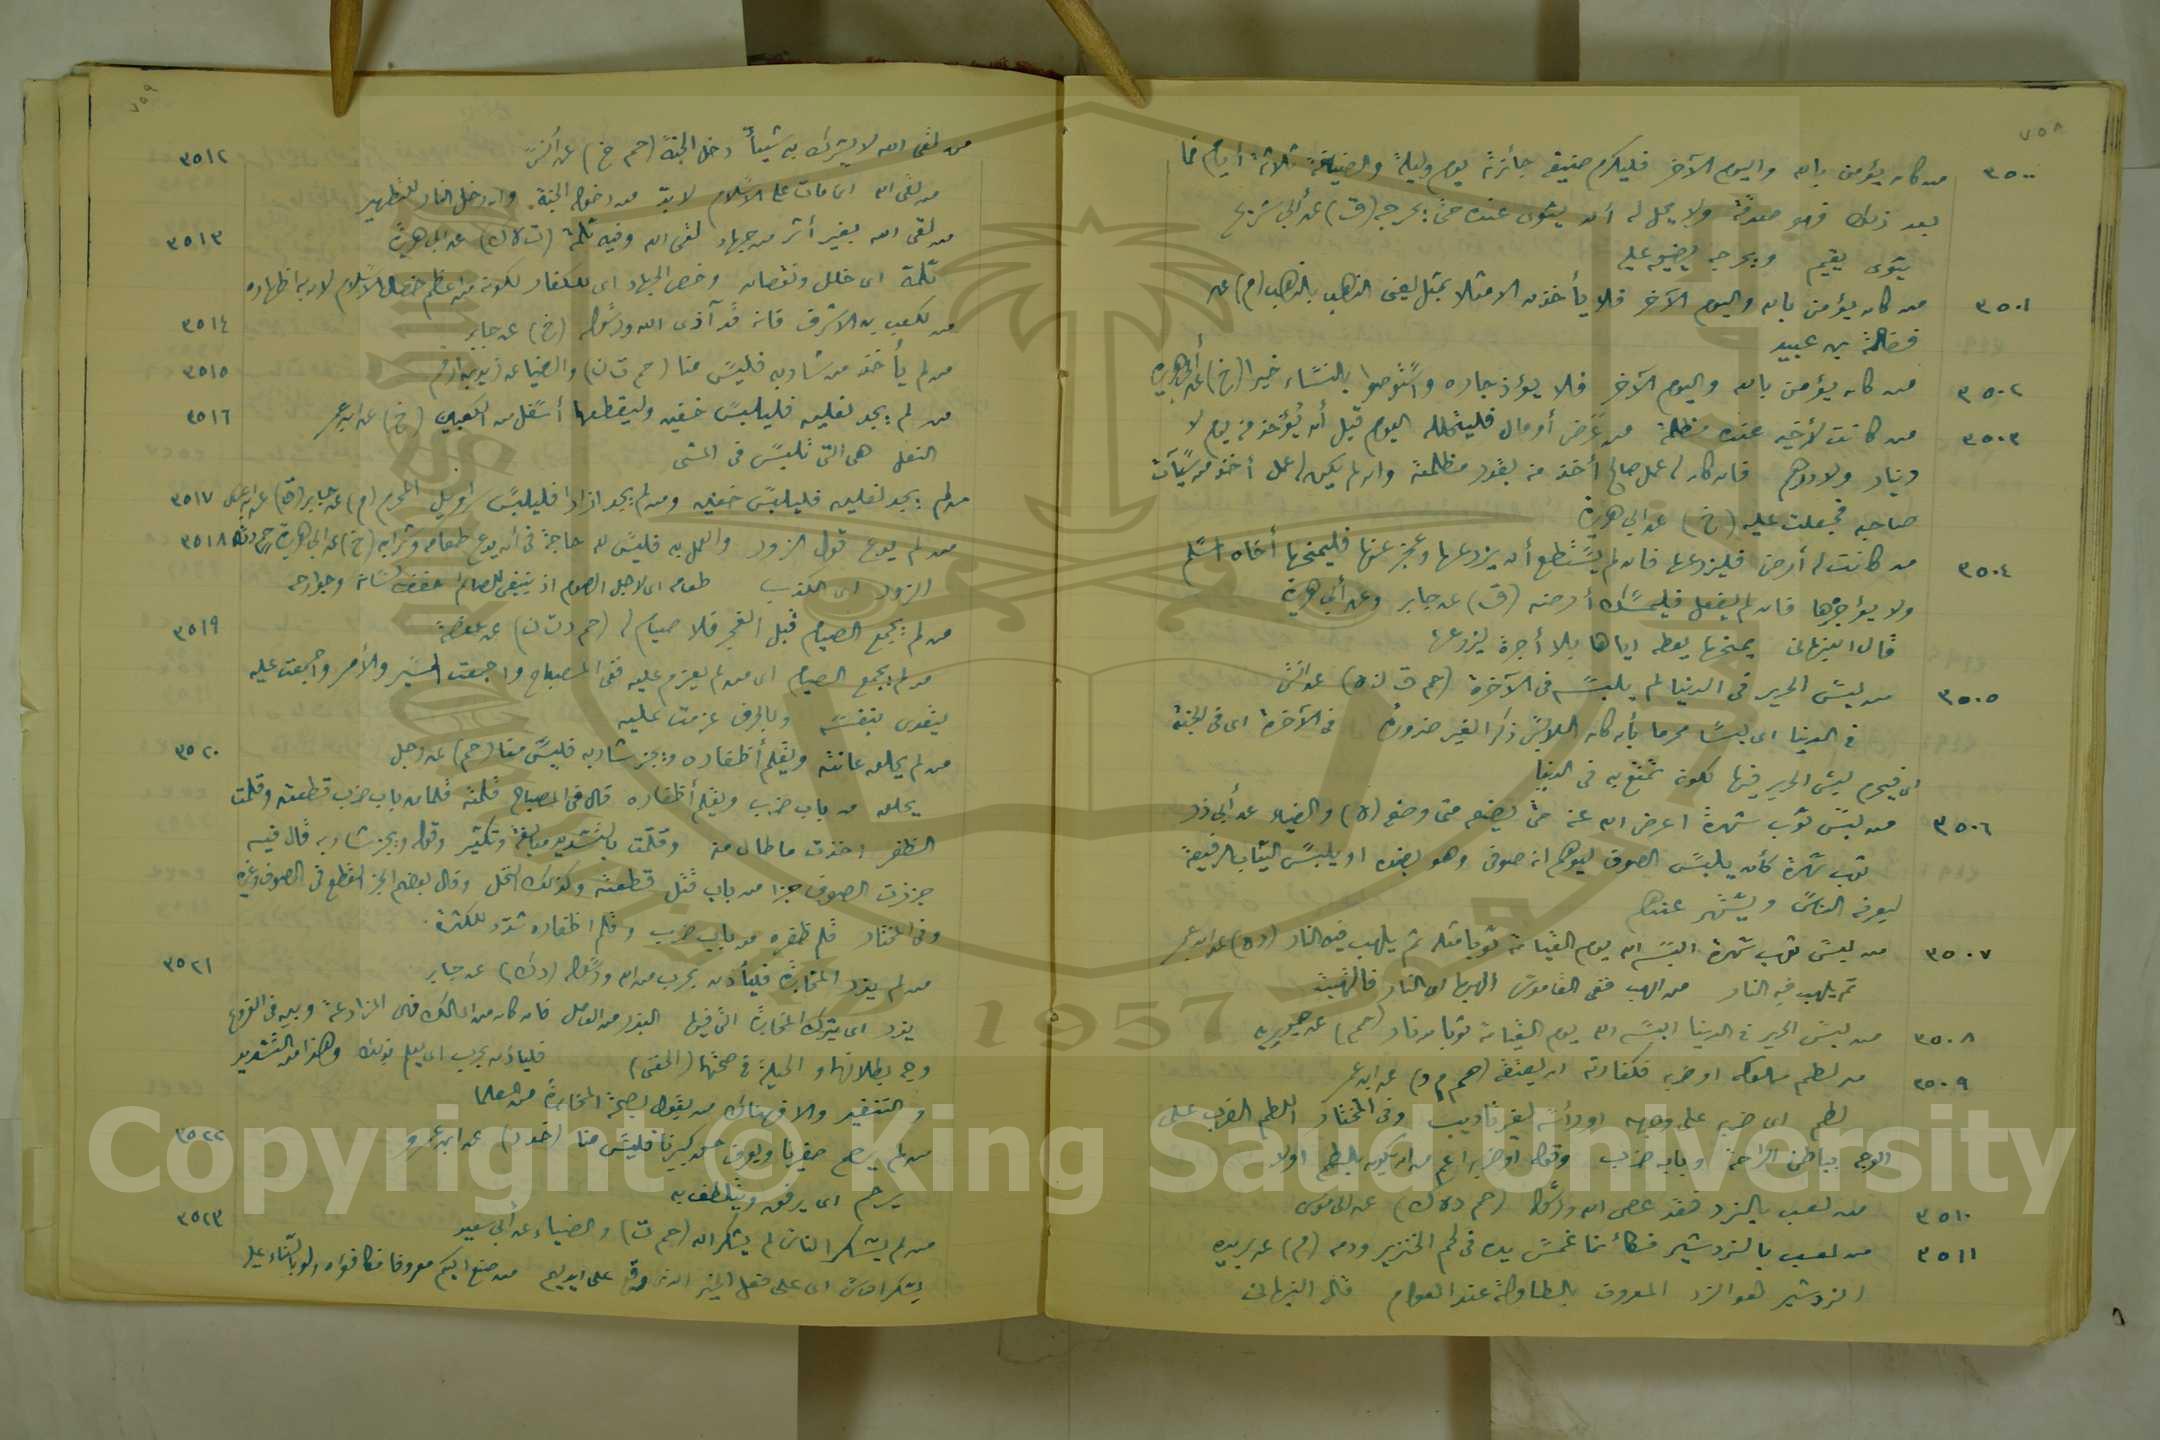 ٧٥٨
٣٥٠٠ من كان يؤمن بالله واليوم الآخر فليكرم ضيفه جائزته يوم وليلة والضيافة ثلاثة أيام فما
بعد ذلك فهو صدقة ولا يحل له أن يثوى عنده حتى يحرجه (ق) عن أبي شريح
يثوى يقيم ويحرجه يضيق عليه
٣٥٠١ من كان يؤمن بالله واليوم الآخر فلا يأخذن الا مثلا بمثل يعنى الذهب بالذهب (م) عن
فضالة بن عبيد
٣٥٠٢ من كان يؤمن بالله واليوم الآخر فلا يؤذ جاره واستوصوا بالنساء خيرا (خ) عن أبي هريرة
٣٥٠٣ من كانت لأخيه عنده مظلمة من عرض أو مال فليتحلله اليوم قبل أن يؤخذ منه يوم لا
دينار ولا درهم فان كان له عمل صالح أخذ منه بقدر مظلمته وان لم يكن له عمل أخذ من سيآت
صاحبه فجعلت عليه (خ) عن أبي هريرة
٣٥٠٤ من كانت له أرض فليزرعها فان لم يستطع أن يزرعها وعجز عنها فليمنحها أخاه المسلم
ولا يؤاجرها فان لم يفعل فليمسك أرضه (ق) عن جابر وعن أبي هريرة
قال النبهانى يمنحها يعطه اياها بلا أجرة ليزرعها
٣٥٠٥ من لبس الحرير فى الدنيا لم يلبسه فى الآخرة (حم ق ن ه) عن أنس
فى الدنيا اى لبسا محرما بأن كان اللابس ذكرا لغير ضرورة فى الآخرة اى فى الجنة
اى فيحرم لبس الحرير فيها لكونه تمتع به فى الدنيا
٣٥٠٦ من لبس ثوب شهرة اعرض الله عنه حتى يضعه متى وضعه (ه) والضياء عن أبي ذر
ثوب شهرة كأن يلبس الصوف ليوهم انه صوفى وهو بضده او يلبس الثياب الرفيعة
ليعرفه الناس ويشتهر عندهم
٣٥٠٧ من لبس ثوب شهرة البسه الله يوم القيامة ثوبا مثله ثم يلهب فيه النار (د ه) عن ابن عمر
ثم يلهب فيه النار من الهب ففى القاموس الهبها اى النار فالتهبت
٣٥٠٨ من لبس الحرير فى الدنيا البسه الله يوم القيامة ثوبا من نار (حم) عن جويرية
٣٥٠٩ من لطم مملوكه او ضربه فكفارته ان يعتقه (حم م د) عن ابن عمر
لطم اى ضربه على وجهه او رأسه لغير تأديب وفى المختار اللطم الضرب على
الوجه بباطن الراحة وبابه ضرب وقوله او ضربه اعم من ان يكون باللطم اولا
٣٥١٠ من لعب بالنرد فقد عصى الله ورسوله (حم د ه ك) عن ابى موسى
٣٥١١ من لعب بالنردشير فكأنما غمس يده فى لحم الخنزير ودمه (م) عن بريدة
النردشير هو النرد المعروف بالطاولة عند العوام قاله النبهانى
٧٥٩
٣٥١٢ من لقى الله لا يشرك به شيئاً دخل الجنة (حم خ) عن أنس
من لقى الله اى مات على الاسلام لا بد من دخوله الجنة وان دخل النار للتطهير
٣٥١٣ من لقى الله بغير أثر من جهاد لقى الله وفيه ثلمة (ت ه ك) عن ابى هريرة
ثلمة اى خلل ونقصان وخص الجهاد اى للكفار لكونه من اعظم خصال الاسلام لان به اظهاره
٣٥١٤ من لكعب بن الاشرف فانه قد آذى الله ورسوله (خ) عن جابر
٣٥١٥ من لم يأخذ من شاربه فليس منا (حم ت ن) والضيا عن زيد بن ارقم
٣٥١٦ من لم يجد نعلين فليلبس خفين وليقطعهما أسفل من الكعبين (خ) عن ابن عمر
النعل هى التى تلبس فى المشى
٣٥١٧ من لم يجد نعلين فليلبس خفين ومن لم يجد ازارا فليلبس سراويل المحرم (م) عن جابر (ق) عن ابن عباس
٣٥١٨ من لم يدع قول الزور والعمل به فليس لله حاجة فى أن يدع طعامه وشرابه (خ) عن ابى هريرة
الزور اى الكذب طعامه اى لاجل الصوم اذ ينبغى للصائم حفظ لسانه وجوارحه
٣٥١٩ من لم يجمع الصيام قبل الفجر فلا صيام له (حم د ت ن) عن حفصة
من لم يجمع الصيام اى من لم يعزم عليه ففى المصباح واجمعت المسير والأمر واجمعت عليه
يتعدى بنفسه وبالحرف عزمت عليه
٣٥٢٠ من لم يحلق عانته ويقلم أظفاره ويجز شاربه فليس منا (حم) عن رجل
يحلق من باب ضرب ويقلم أظفاره قال فى المصباح قلمته قلما من باب ضرب قطعته وقلمت
الظفر اخذت ما طال منه وقلّمت بالتشديد مبالغة وتكثير وقوله ويجز شاربه قال فيه
جززت الصوف جزا من باب قتل قطعته وكذلك النخل وقال بعضهم الجز القطع فى الصوف وغيره
وفى المختار قلم ظفره من باب ضرب وقلم اظفاره شدد للكثرة
٣٥٢١ من لم يذر المخابرة فليأذن بحرب من الله ورسوله (د ك) عن جابر
يذر اى يترك المخابرة التى فيها البذر من العامل فان كان من المالك فهى المزارعة وبين فى الفروع
وجه بطلانها والحيلة فى صحتها (الحفنى) فليأذن بحرب اى يعلم بذلك وهذا من التشديد
والتنفير والا فهناك من يقول بصحة المخابرة من العلما
٣٥٢٢ من لم يرحم صغيرنا ويعرف حق كبيرنا فليس منا (خد د) عن ابن عمرو
يرحم اى يرفق ويتلطف به
٣٥٢٣ من لم يشكر الناس لم يشكر الله (حم ت) والضياء عن أبى سعيد
يشكر الناس اى على فعل الخير على ايديهم من صنع اليكم معروفا فكافؤه ولو بالثناء عليه
Copyright © King Saud University
1957